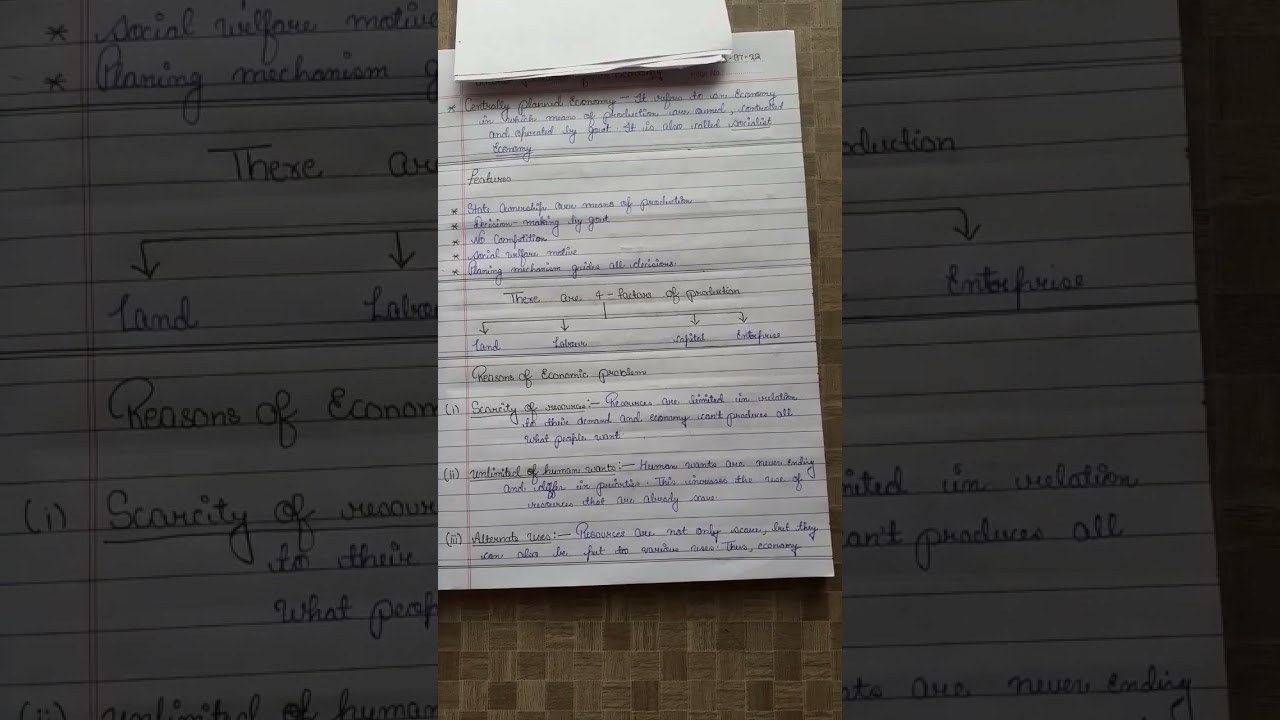 -07-22
* Centrally planned Economy - It refers to an Economy
in which means of production are owned, controlled
and operated by govt. It is also called socialist
Economy
Features
* State Ownership over means of production
* Decision-making by govt
* No Competition
* Social welfare motive
* Planing mechanism guides all decisions.
There are 4-factors of production
Land Labour Capital Enterprise
Reasons of Economic problem
(i) Scarcity of resources:- Resources are limited in relation
to their demand and economy can't produces all
what people want
(ii) unlimited of human wants:- Human wants are never ending
and differ in priorities. This increases the use of
resources that are already scare.
(iii) Alternate uses:- Resources are not only scare, but they
can also be put to various uses. Thus, economy
* Social welfare motive
* Planing mechanism g
There are
duction
Land Labou
Enterprise
Reasons of Econom
(i) Scarcity of resour
mited in relation
to their
can't produces all
what peop
(ii) unlimited of human
nts are never ending